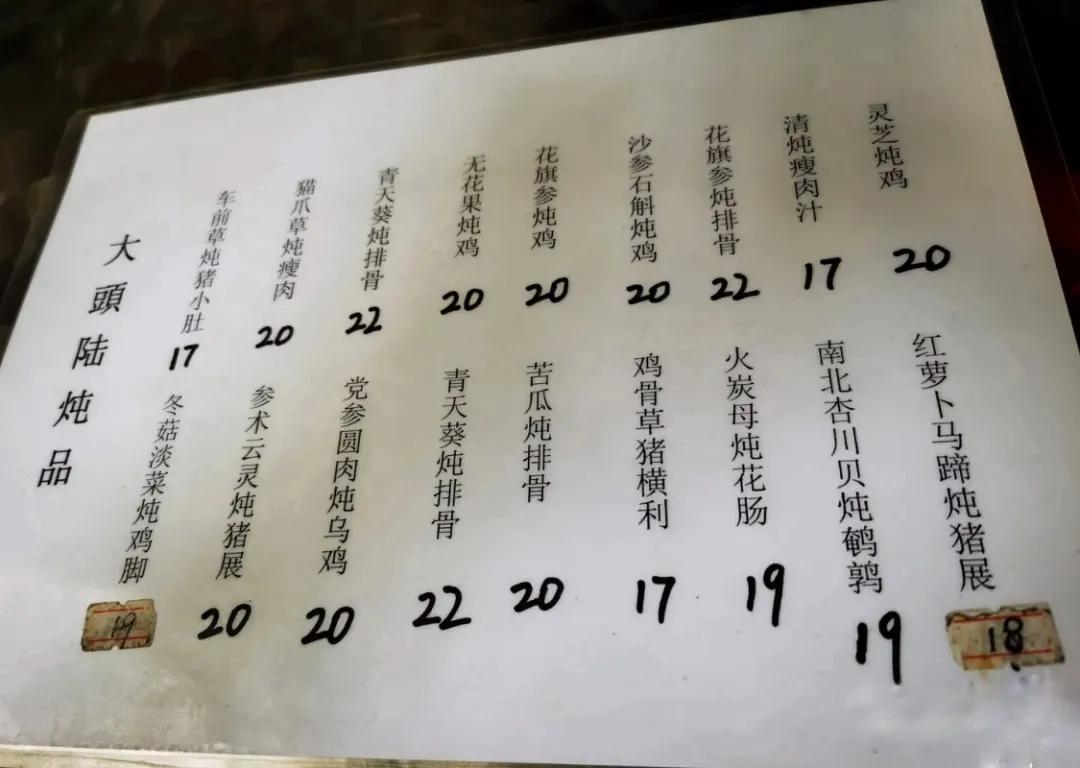 大頭陆炖品
车前草炖猪小肚
17
猫爪草炖瘦肉
20
青天葵炖排骨
22
无花果炖鸡
20
花旗参炖鸡
20
沙参石斛炖鸡
20
花旗参炖排骨
22
清炖瘦肉汁
17
灵芝炖鸡
20
冬菇淡菜炖鸡脚
19
参术云灵炖猪展
20
党参圆肉炖乌鸡
20
青天葵炖排骨
22
苦瓜炖排骨
20
鸡骨草猪横利
17
火炭母炖花肠
19
南北杏川贝炖鹌鹑
19
红萝卜马蹄炖猪展
18